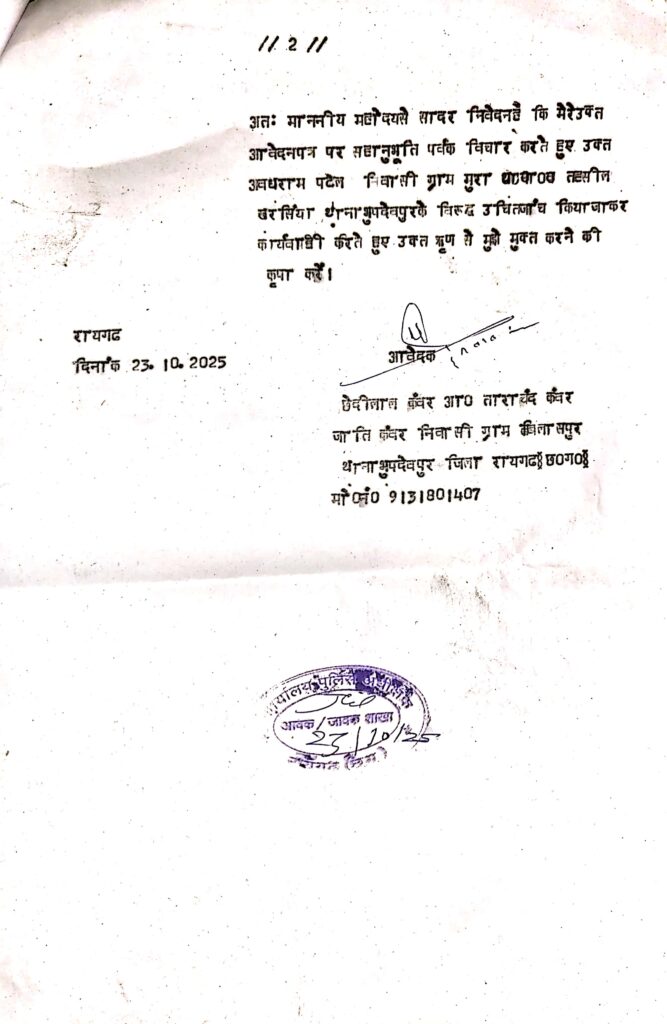 // 2 //
अतः माननीय महोदयसे सादर निवेदनहै कि मेरेउक्त
आवेदनपत्र पर सहानुभूति पर्वक विचार करते हुए उक्त
अवधराम पटेल निवासी ग्राम मुरा तहसील
खरसिया थानाभुपदेवपुरके विरूद्ध उचितजांच कियाजाकर
कार्यवाही करते हुए उक्त ऋण से मुझे मुक्त करने की
कृपा करें।
रायगढ
दिनांक 23.10.2025
आवेदक
छेदीलाल कंवर आ0 ताराचंद कंवर
जाति कंवर निवासी ग्राम बिलासपुर
थानाभुपदेवपुर जिला रायगढ§छ0ग0§
मो0नं0 9131801407
कार्यालय पुलिस अधीक्षक
आवक/जावक शाखा
23/10/25
रायगढ़ (छ.ग.)